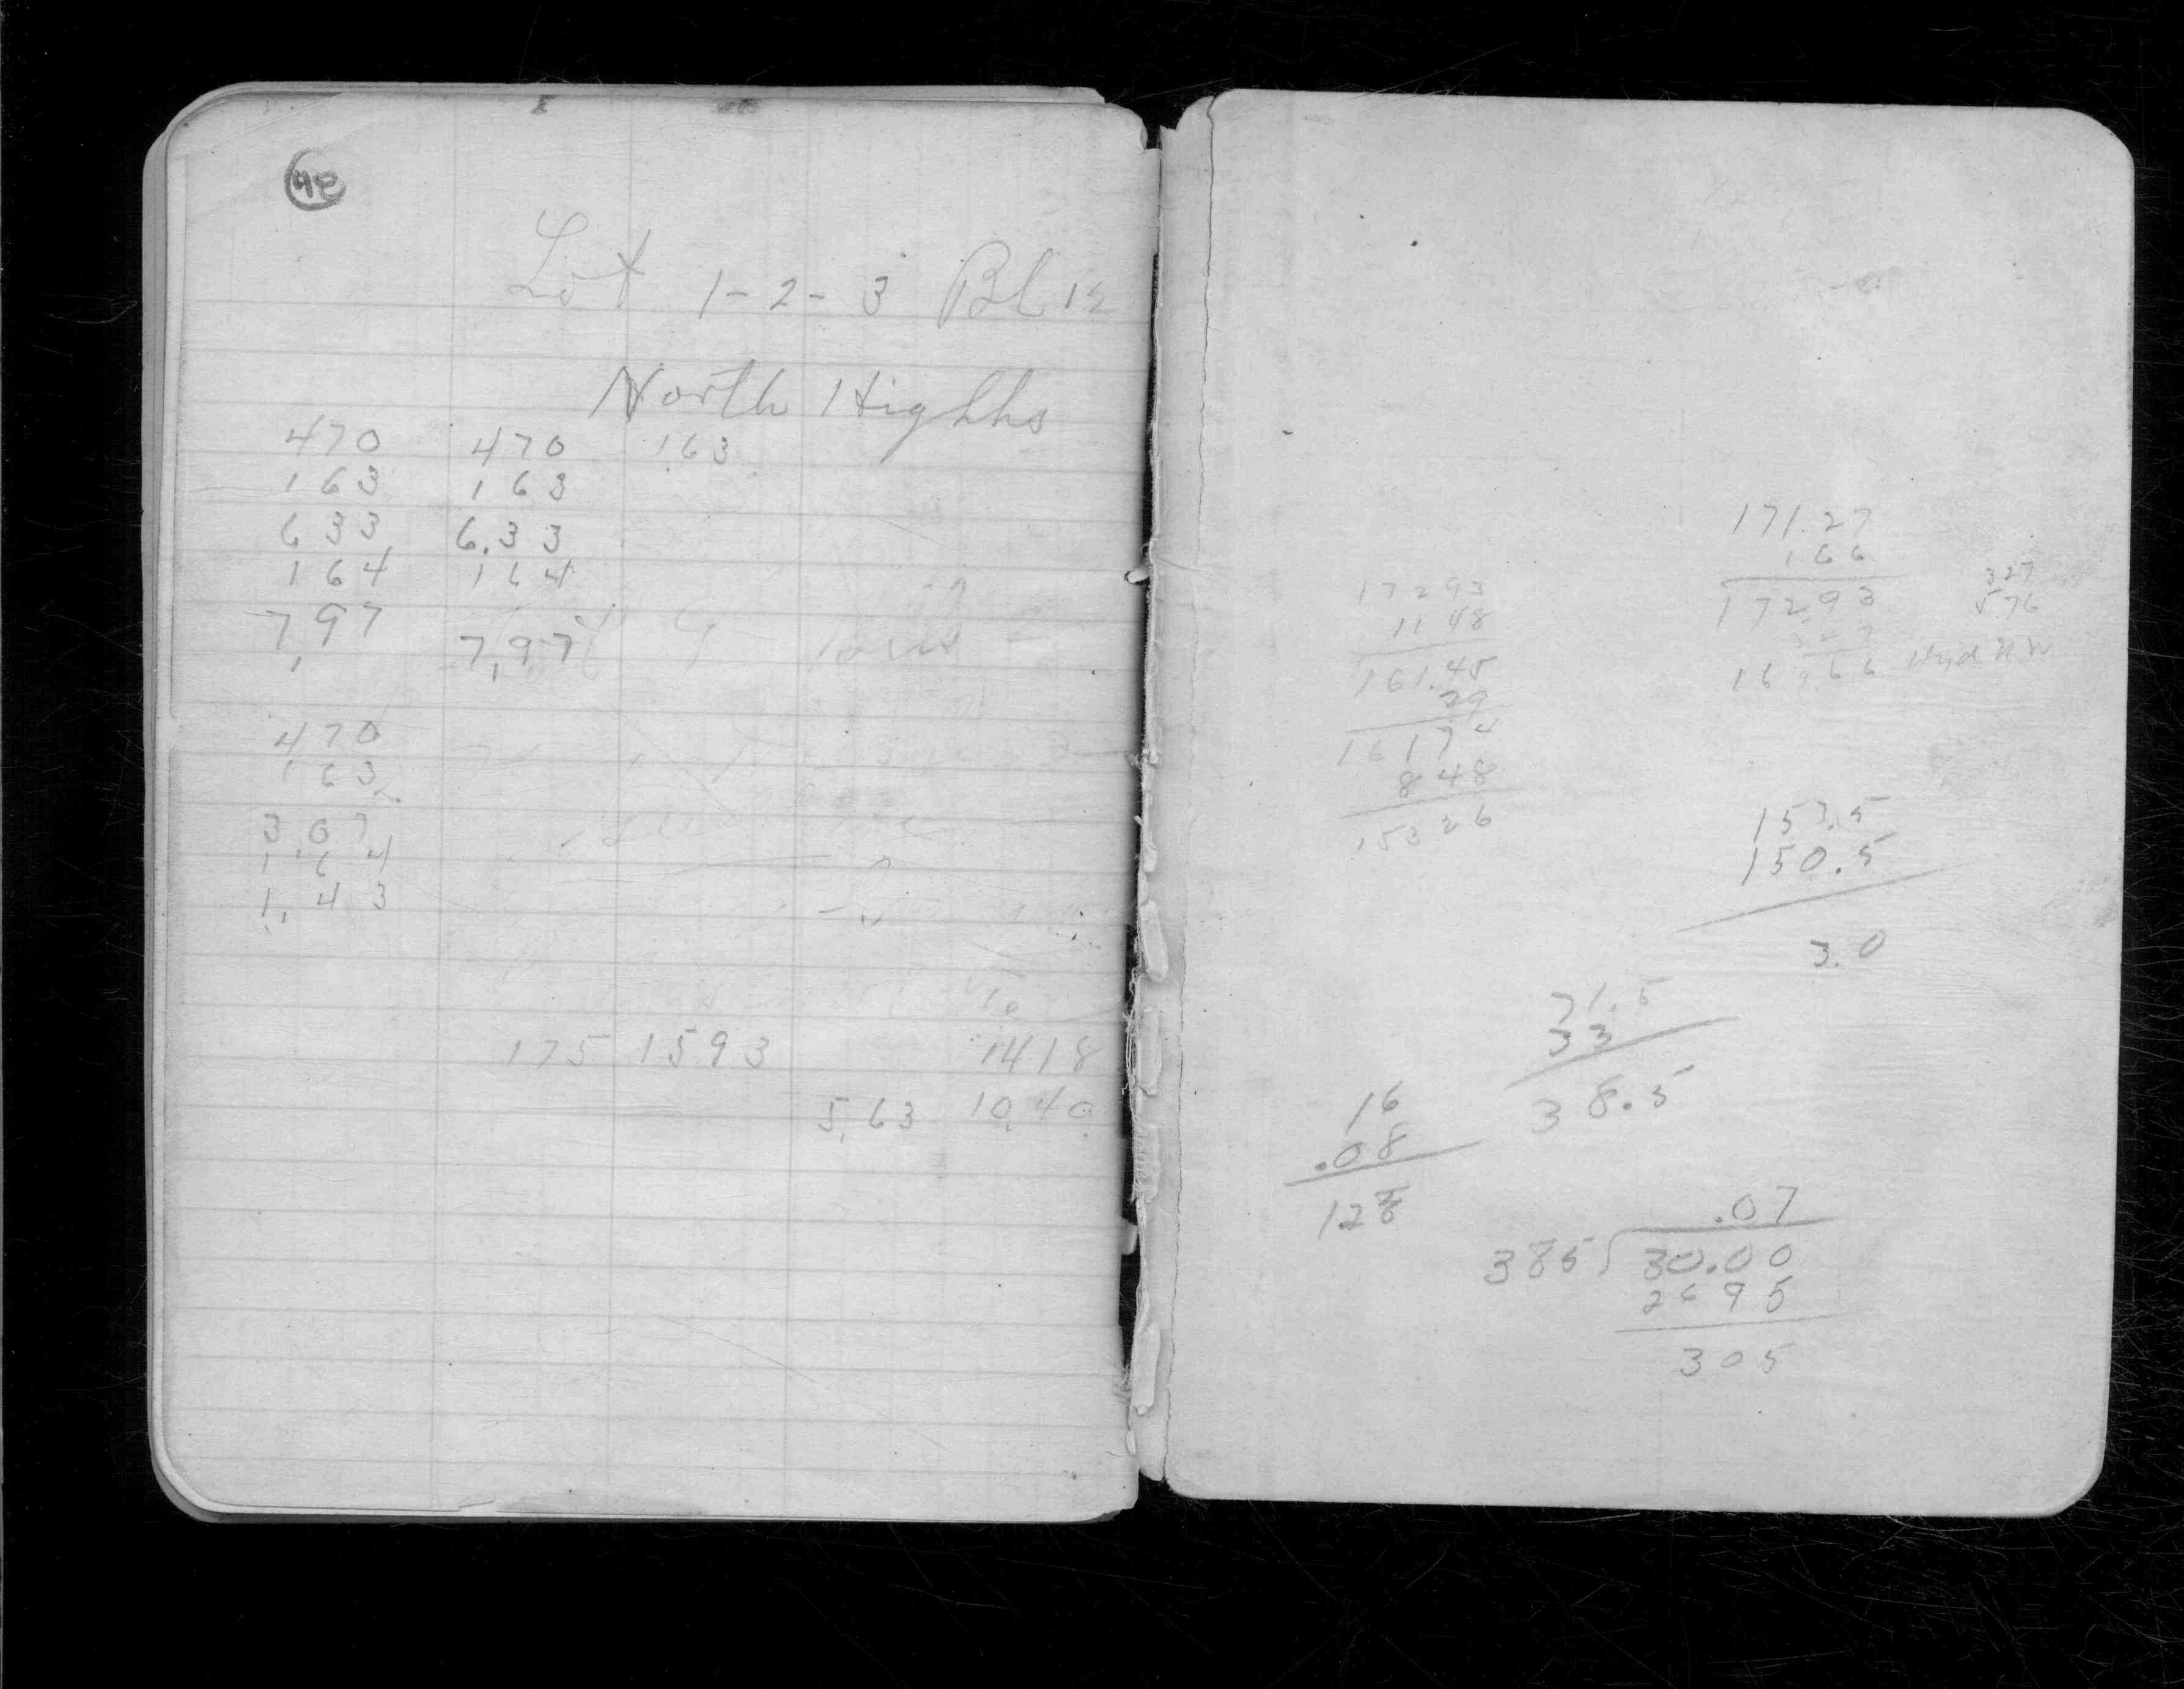 48
Lot 1-2-3 Bl 12
North Highhs
470 470 163
163 163
633 6.33
164 164
7,97 7,97
470
163
3.07
1.64
1.43
175 1593 1418
5.63 10.40
171.27
166
17293
16966 Hyd N W
327
576
17293
1148
161.45
29
16174
848
15326
153.5
150.5
3.0
71.5
33
38.5
16
.08
1.28
.07
385 30.00
2695
305